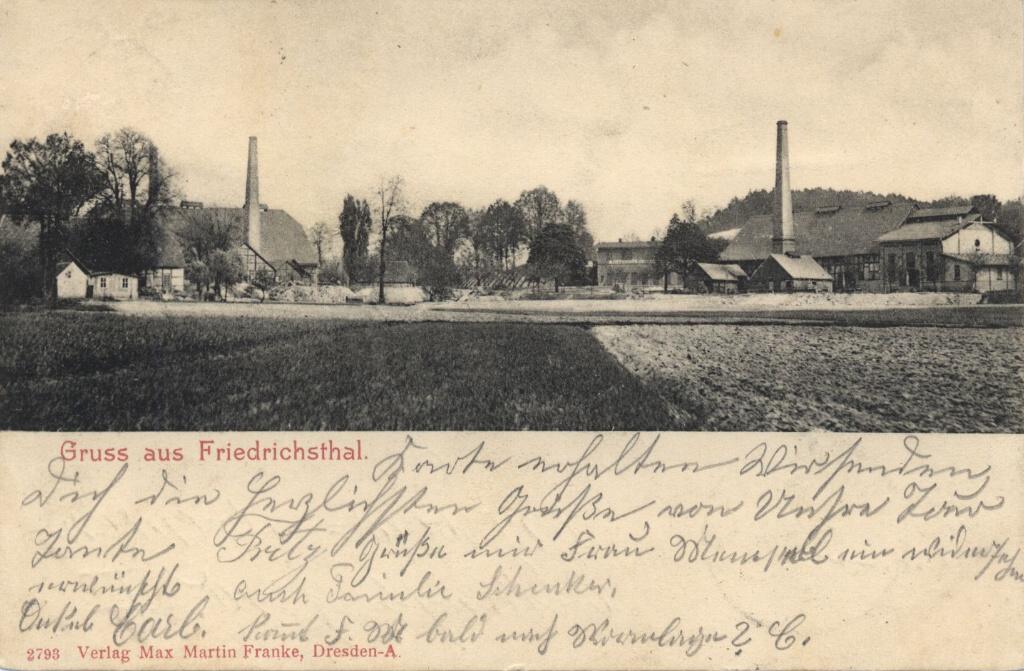 Gruss aus Friedrichsthal.
Karte erhalten Wir senden
Dich die Herzlichsten Grüße von Unsre Tour
Tante Fritz Grüße mir Frau ein
erwünscht auch Familie Schenker,
Carl. F. M bald nach ? C.
2793 Verlag Max Martin Franke, Dresden-A.